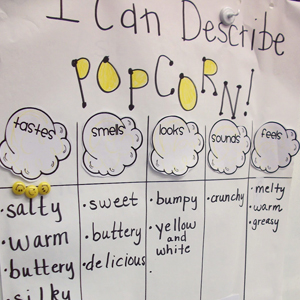 I Can Describe
POPCORN!
tastes smells looks sounds feels
•salty
•warm
•buttery
silky
•sweet
•buttery
•delicious
•bumpy
•yellow
and
white
•
•crunchy
•melty
•warm
•greasy